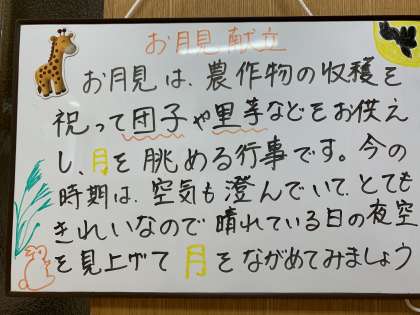 お月見献立
お月見は、農作物の収穫を
祝って団子や里芋などをお供え
し、月を眺める行事です。今の
時期は、空気も澄んでいて、とても
きれいなので晴れている日の夜空
を見上げて月をながめてみましょう